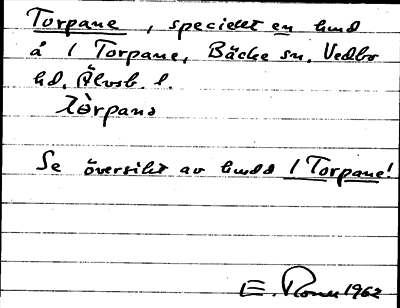 Torpane, speciellt en hmd
å 1 Torpane, Bäcke sn. Vedbo
hd. Älvsb. l.
Se översikt av hmdd 1 Torpane!
E. 1962